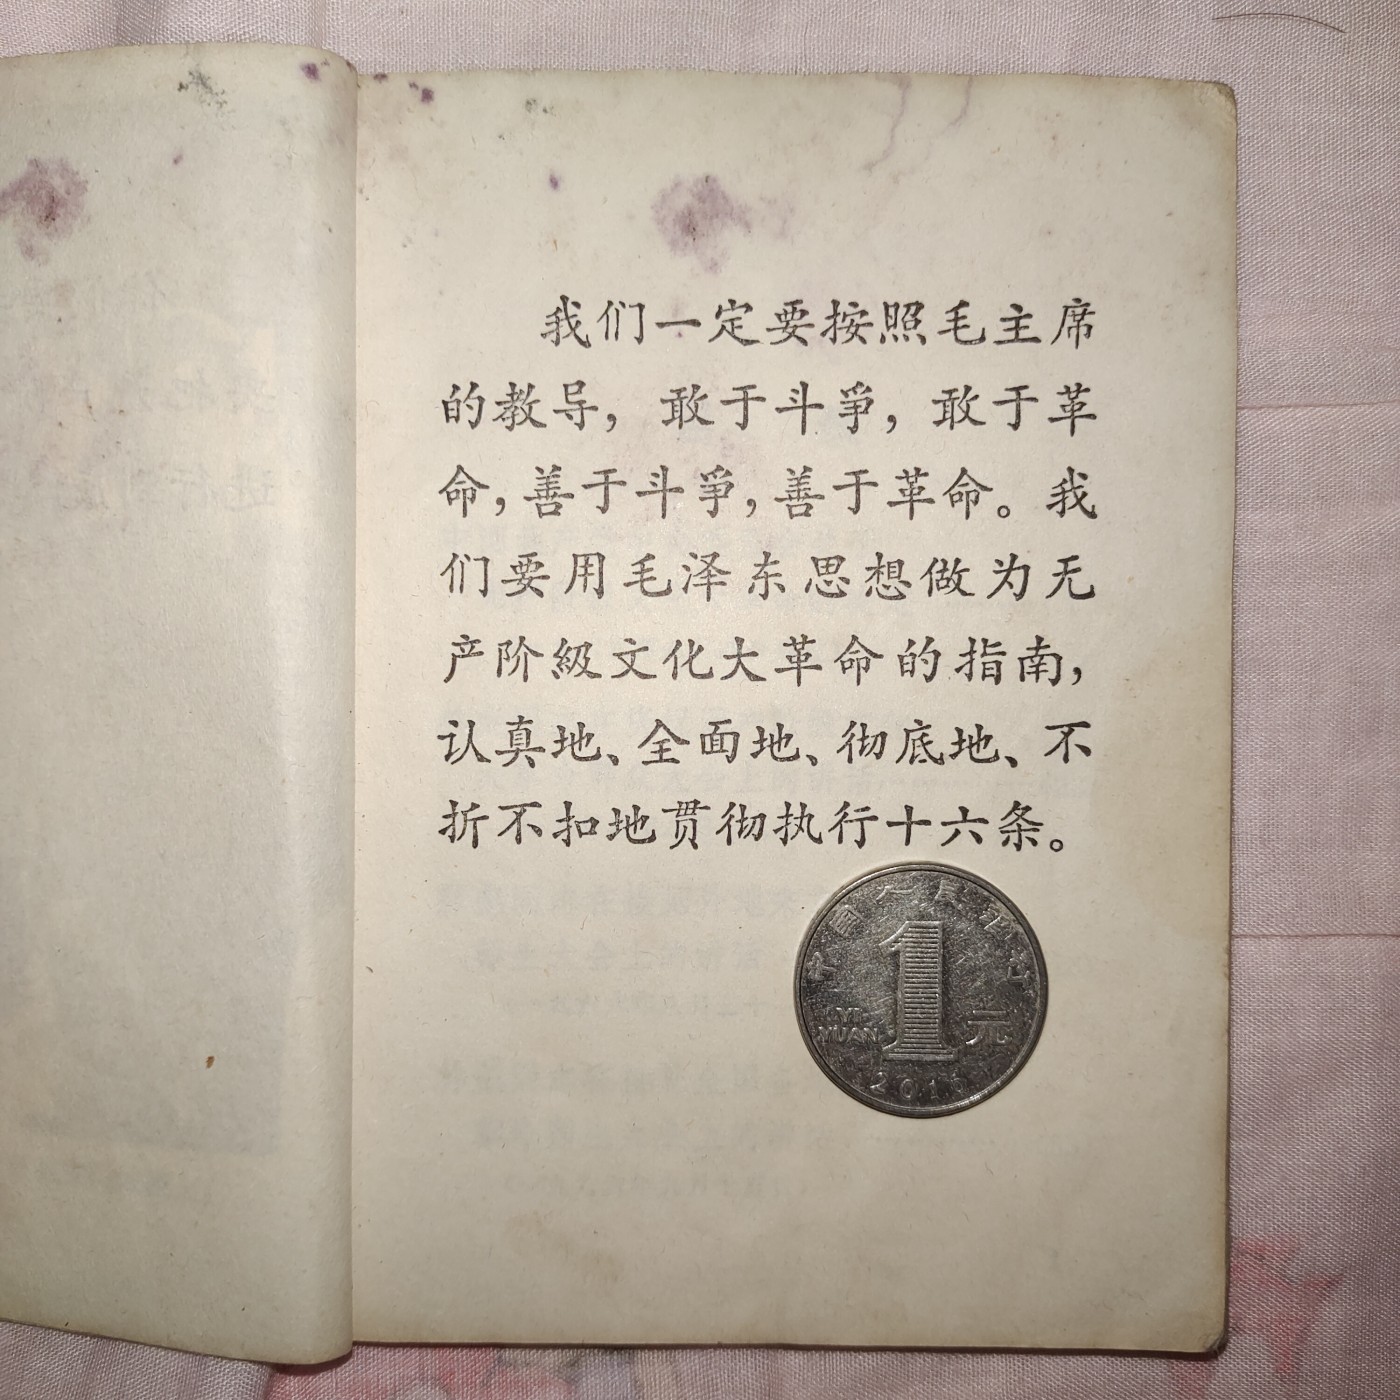 我们一定要按照毛主席
的教导，敢于斗爭，敢于革
命，善于斗爭，善于革命。我
们要用毛泽东思想做为无
产阶級文化大革命的指南，
认真地、全面地、彻底地、不
折不扣地贯彻执行十六条。
中国人民银行
1
YI
YUAN
元
2016